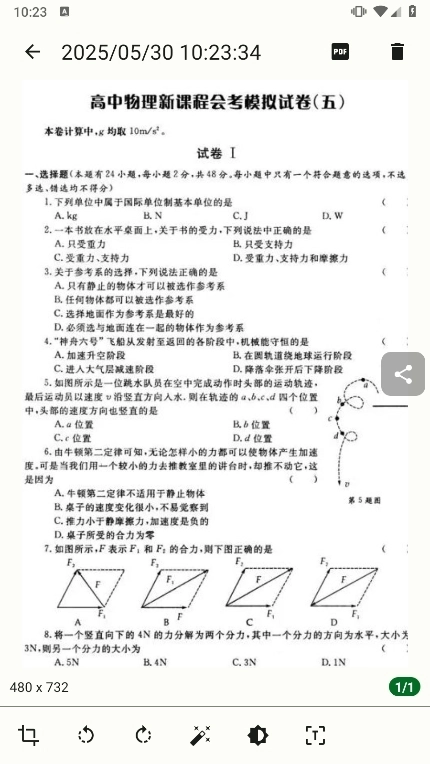 10:23
A
2025/05/30 10:23:34
PDF
高中物理新课程会考模拟试卷(五)
本卷计算中,g 均取 10m/s²。
试卷 Ⅰ
一、选择题(本题有 24 小题,每小题 2 分,共 48 分。每小题中只有一个符合题意的选项,不选
多选、错选均不得分)
1.下列单位中属于国际单位制基本单位的是 (
A. kg B. N C. J D. W
2.一本书放在水平桌面上,关于书的受力,下列说法中正确的是 (
A. 只受重力 B. 只受支持力
C. 受重力、支持力 D. 受重力、支持力和摩擦力
3.关于参考系的选择,下列说法正确的是 (
A. 只有静止的物体才可以被选作参考系
B. 任何物体都可以被选作参考系
C. 选择地面作为参考系是最好的
D. 必须选与地面连在一起的物体作为参考系
4.“神舟六号”飞船从发射至返回的各阶段中,机械能守恒的是 (
A. 加速升空阶段 B. 在圆轨道绕地球运行阶段
C. 进入大气层减速阶段 D. 降落伞张开后下降阶段
5.如图所示是一位跳水队员在空中完成动作时头部的运动轨迹,
最后运动员以速度 v 沿竖直方向入水.则在轨迹的 a、b、c、d 四个位置
中,头部的速度方向也竖直的是 ( )
A. a 位置 B. b 位置
C. c 位置 D. d 位置
a
b
c
d
v
第 5 题图
6.由牛顿第二定律可知,无论怎样小的力都可以使物体产生加速
度,可是当我们用一个较小的力去推教室里的讲台时,却推不动它,这
是因为 ( )
A. 牛顿第二定律不适用于静止物体
B. 桌子的速度变化很小,不易觉察到
C. 推力小于静摩擦力,加速度是负的
D. 桌子所受的合力为零
7.如图所示,F 表示 F₁ 和 F₂ 的合力,则下图正确的是 (
F₂ F F₁ F₂ F₁ F F₂ F F₁ F₂ F F₁
A B C D
8.将一个竖直向下的 4N 的力分解为两个分力,其中一个分力的方向为水平,大小为
3N,则另一个分力的大小为 (
A. 5N B. 4N C. 3N D. 1N
480 x 732
1/1
T